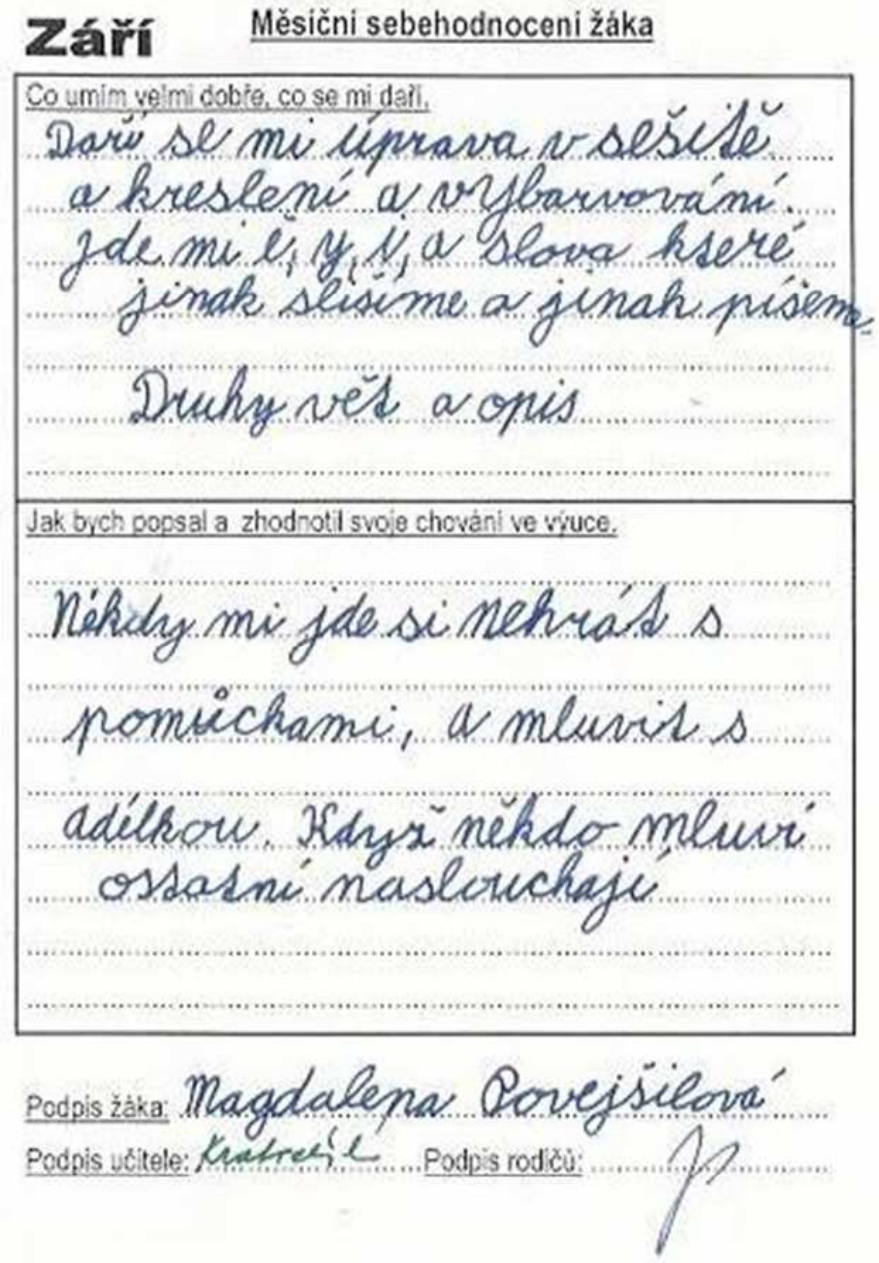 Září
Měsíční sebehodnocení žáka
Co umím velmi dobře, co se mi daří.
Daří se mi úprava v sešitě
a kreslení a vybarvování.
jde mi ě, y, i, a slova které
jinak slišíme a jinak píšeme.
Druhy vět a opis
Jak bych popsal a zhodnotil svoje chování ve výuce.
Někdy mi jde si nehrát s
pomůckami, a mluvit s
adélkou. Když někdo mluví
ostatní naslouchají
Podpis žáka: Magdalena Povejšilová
Podpis učitele: Podpis rodičů: